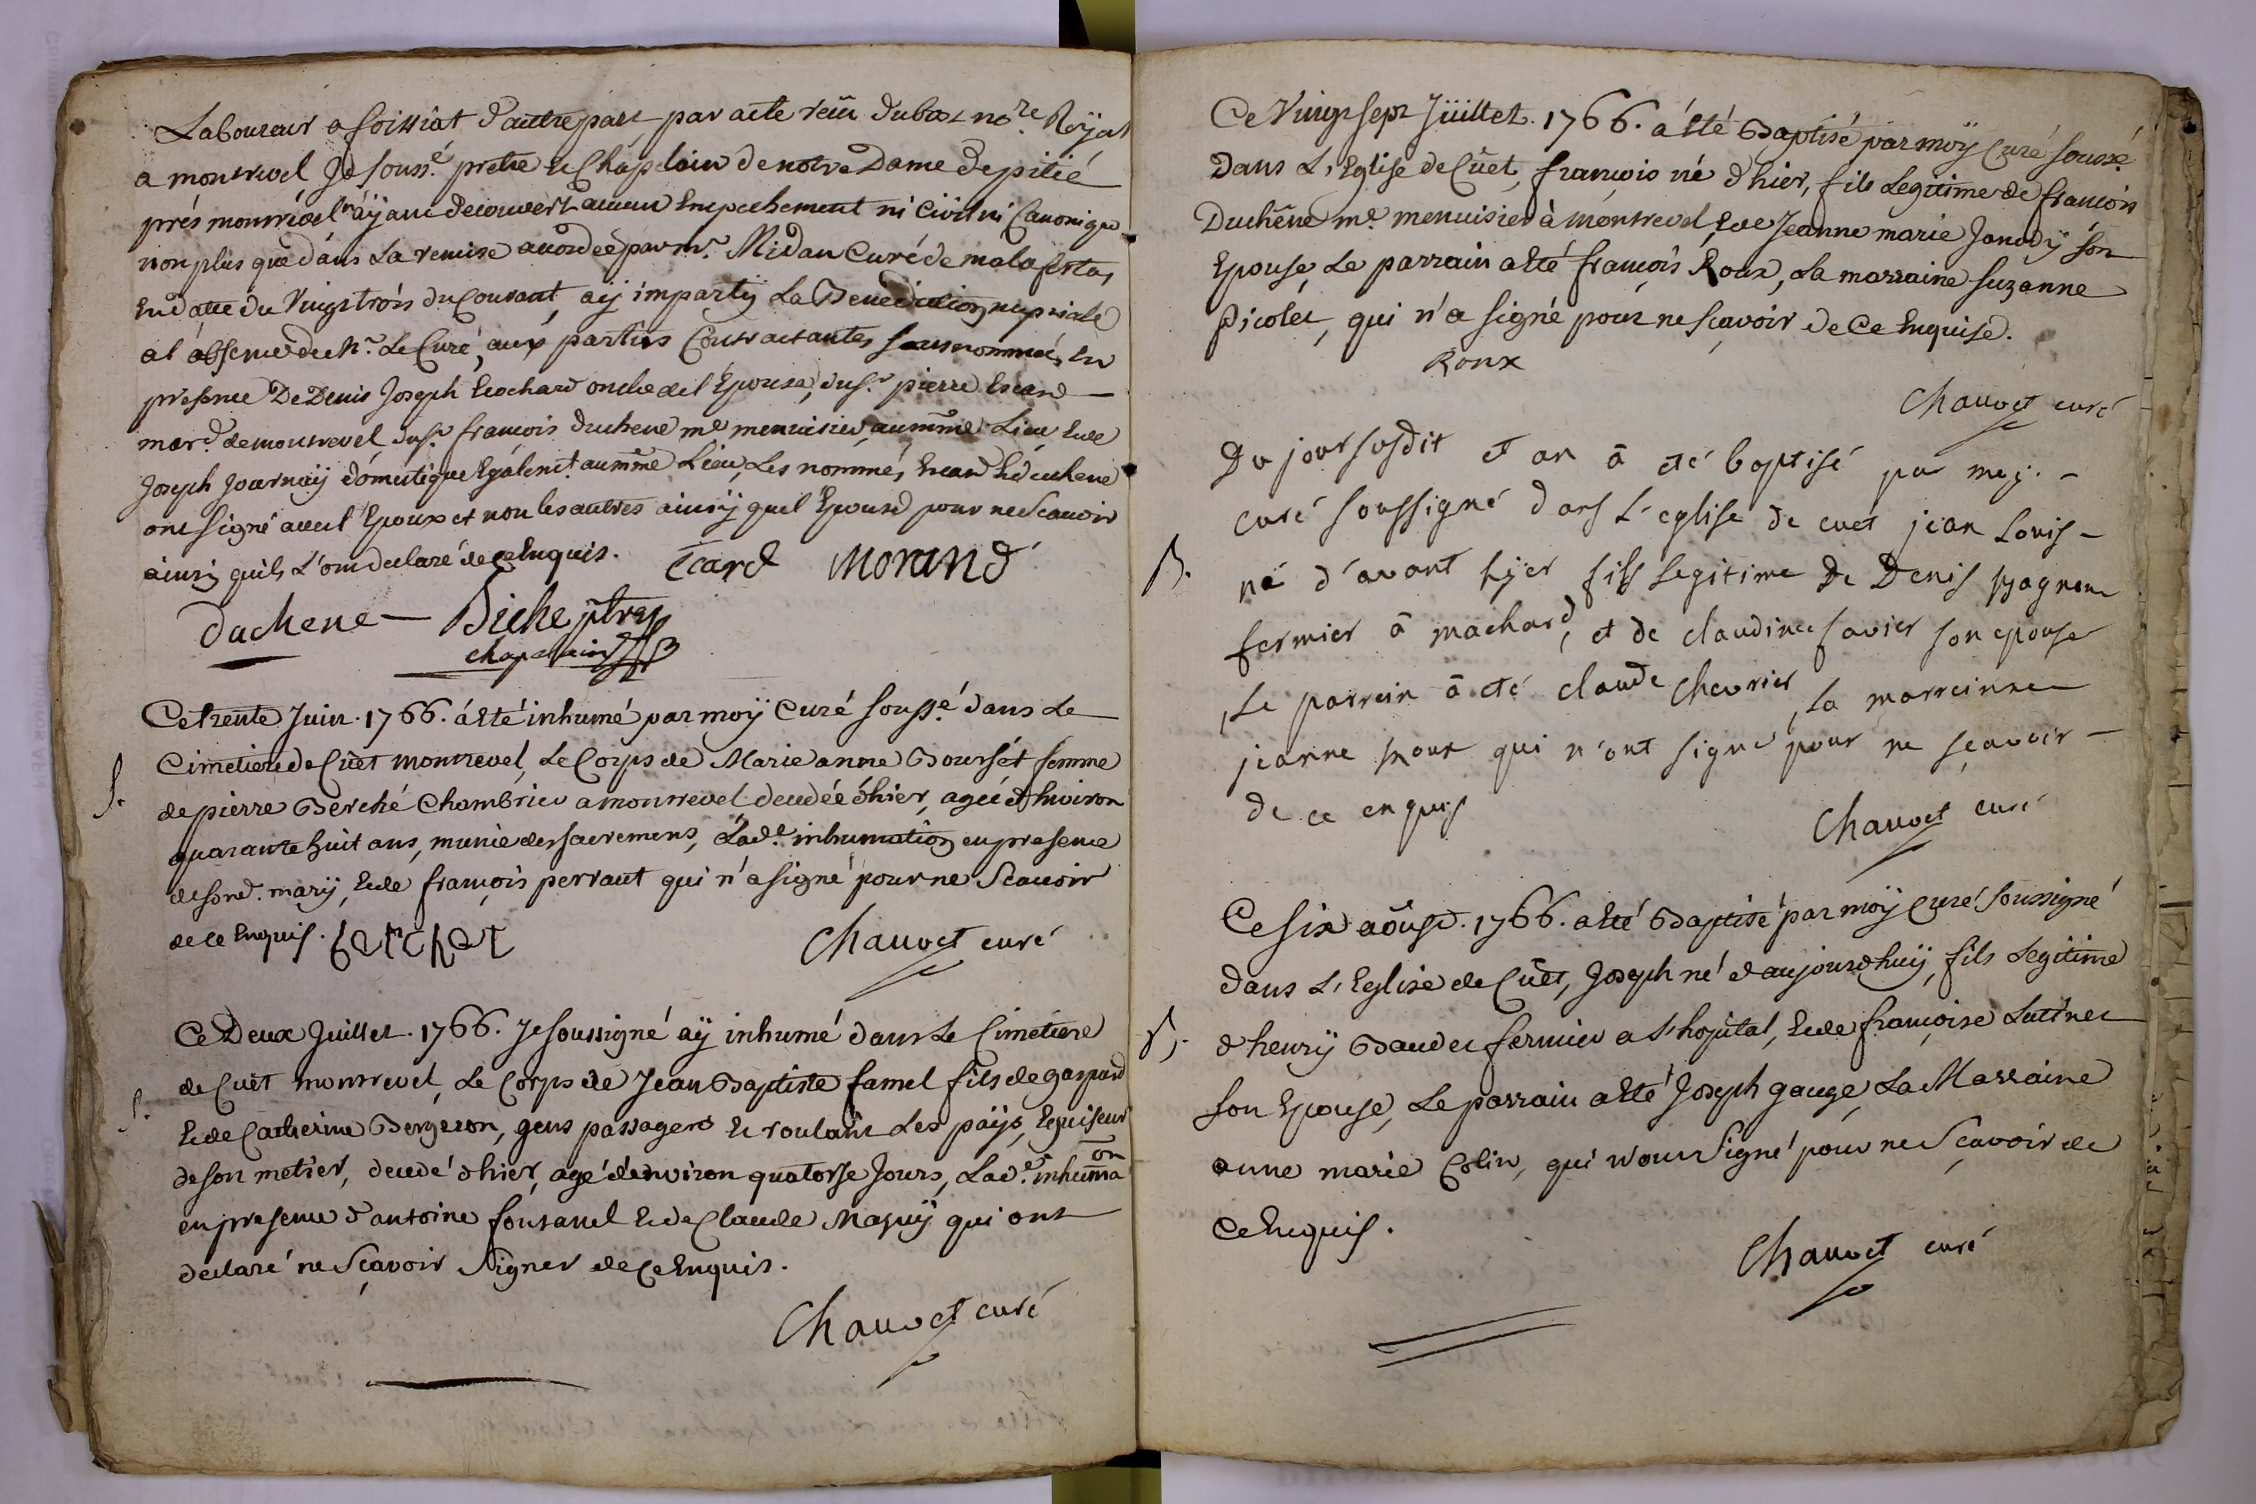 Laboureur a foissiat d'autre part, par acte reçu Dubost no.re Royal
a montrevel Je souss.é pretre et Chapelain de notre Dame de pitié
prés montrevel n'aÿant decouvert aucun Empechement ni Civil ni Canonique
non plus que dans la remise accordée par m.r Midan Curé de malafretas
En datte du Vingt trois du Courant, aÿ impartÿ La Benediction nuptiale
a l'absence de m.r Le Curé, aux parties Contractantes sus nommées En
presence De Denis Joseph Ecochard oncle de l'Epouse, du s.r pierre Escard
march.d de montrevel, du s.r françois duchene m.e menuisier au mme Lieu Et de
Joseph Journaÿ domestique Egalem.t au mme Lieu, Les nommés Encard Et duchene
ont signé avec l'Epoux et non les autres ainsÿ que l'Epouse pour ne Scavoir
ainsi quils L'ont declaré de ce Enquis. Ecard Morand
Duchene Piche ptre
chapelain
Ce trente Juin. 1766. á été inhumé par moÿ Curé souss.é dans Le
S. Cimetiere de Cuet montrevel, Le Corps de Marie anne Boursét femme
de pierre Berché Chambrier a montrevel decedée d'hier, agée d'Environ
quarante huit ans, munie des sacremens, Lad.e inhumation en presence
de sond. marÿ, Et de françois perraut qui n'a signé pour ne Scavoir
de ce Enquis. berchet Chauvet curé
Ce Deux Juillet. 1766. Je soussigné aÿ inhumé dans Le Cimetiere
de Cuet montrevel, Le Corps de Jean Baptiste famel fils de gaspard
S. Et de Catherine Bergeron, gens passagers Et roulant Les païs, Eguiseur
de son metier, decedé d'hier, agé d'environ quatorse Jours, Lad.e inhuma.on
en presence d'antoine fontanel Et de Claude Maruÿ qui ont
declaré ne Sçavoir Signer de Ce Enquis.
Chauvet curé
Ce Vingt sept Jüillet. 1766. á été Baptisé par moÿ Curé souss.é
Dans L'Eglise de Cüet, françois né d'hier, fils Legitime de françois
Duchêne m.e menuisier à montrevel, Et de Jeanne marie Janodÿ son
Epouse, Le parrain a été françois Roux, La marraine suzanne
Picolet, qui n'a signé pour ne sçavoir de Ce Enquise.
Roux
Chauvet curé
Du jour susdit et an ā eté baptisé par moy. -
curé soussigné dans L'eglise de cuet jean Louis -
B. né d'avant hÿer fils Legitime de Denis
fermier ā machard, et de claudine favier son epouse
Le parrein ā eté claude chevrier, la marreinne
jeanne qui n'ont signé pour ne sçavoir -
de ce enquis
Chauvet curé
Ce six aôust. 1766. a été Baptisé par moÿ Curé soussigné
dans L'Eglise de Cüet, Joseph né d'aujourdhuÿ, fils Legitime
B. d'henrÿ Baudet fermier a l'hopital, Et de françoise
son Epouse, Le parrain a été Joseph gauge, La Marraine
anne marie Colin, qui n'ont Signé pour ne Sçavoir de
Ce Enquis.
Chauvet curé